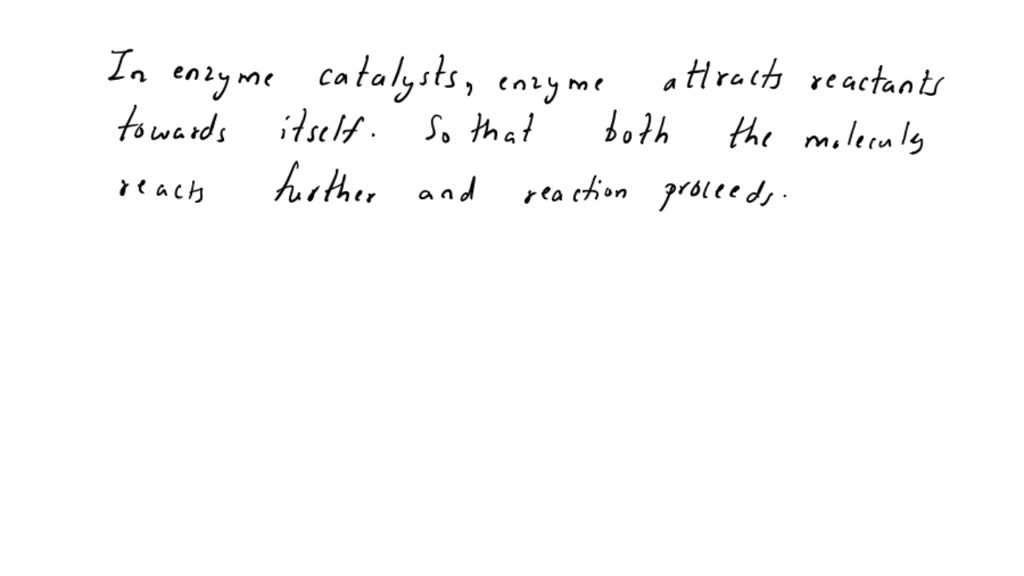 In enzyme catalysts, enzyme attracts reactants
towards itself. So that both the moleculs
reacts further and reaction proceeds.